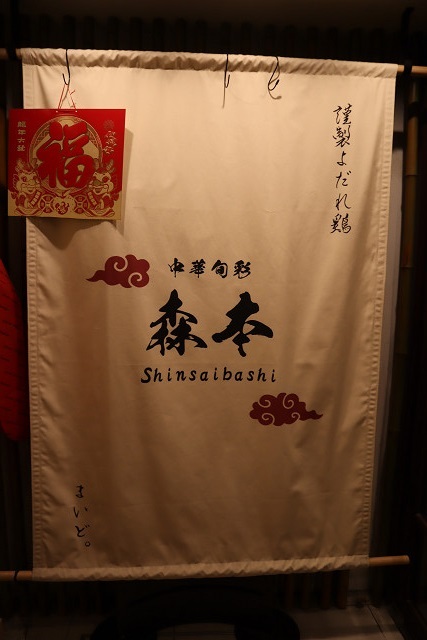 謹製よだれ鶏
福
中華旬彩
森本
Shinsaibashi
まいど。